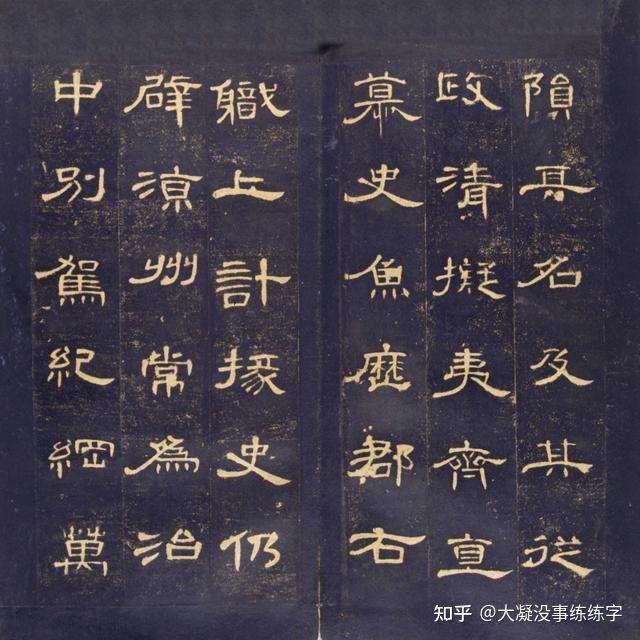 隕其名及其從
政清擬夷齊直
慕史魚歷郡右
職上計掾史仍
辟涼州常為治
中別駕紀綱萬
知乎 @大凝没事练练字